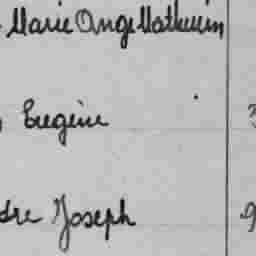 Marie Ange Mathurin
Eugène
dre Joseph 9